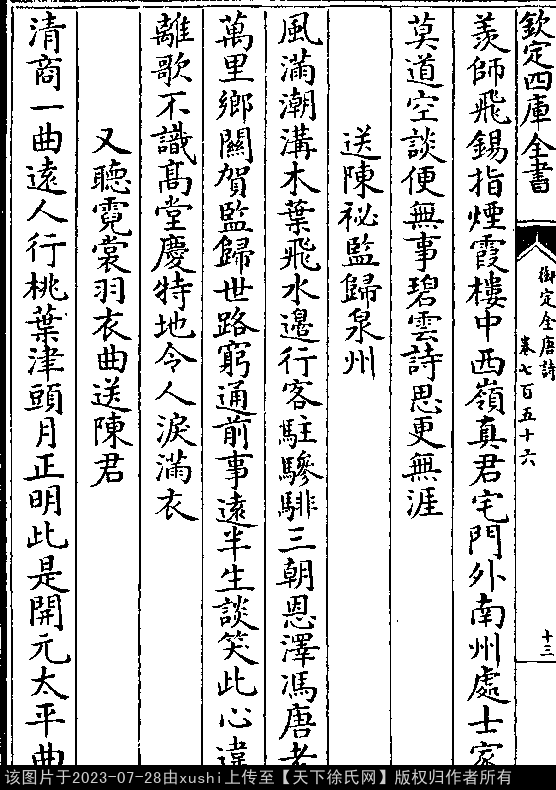 欽定四庫全書
御定全唐詩
卷七百五十六
十三
羡師飛錫指煙霞樓中西嶺真君宅門外南州處士家
莫道空談便無事碧雲詩思更無涯
送陳祕監歸泉州
風滿潮溝木葉飛水邊行客駐驂騑三朝恩澤馮唐老
萬里鄉關賀監歸世路窮通前事遠半生談笑此心違
離歌不識髙堂慶特地令人淚滿衣
又聽霓裳羽衣曲送陳君
清商一曲遠人行桃葉津頭月正明此是開元太平曲
该图片于2023-07-28由xushi上传至【天下徐氏网】版权归作者所有